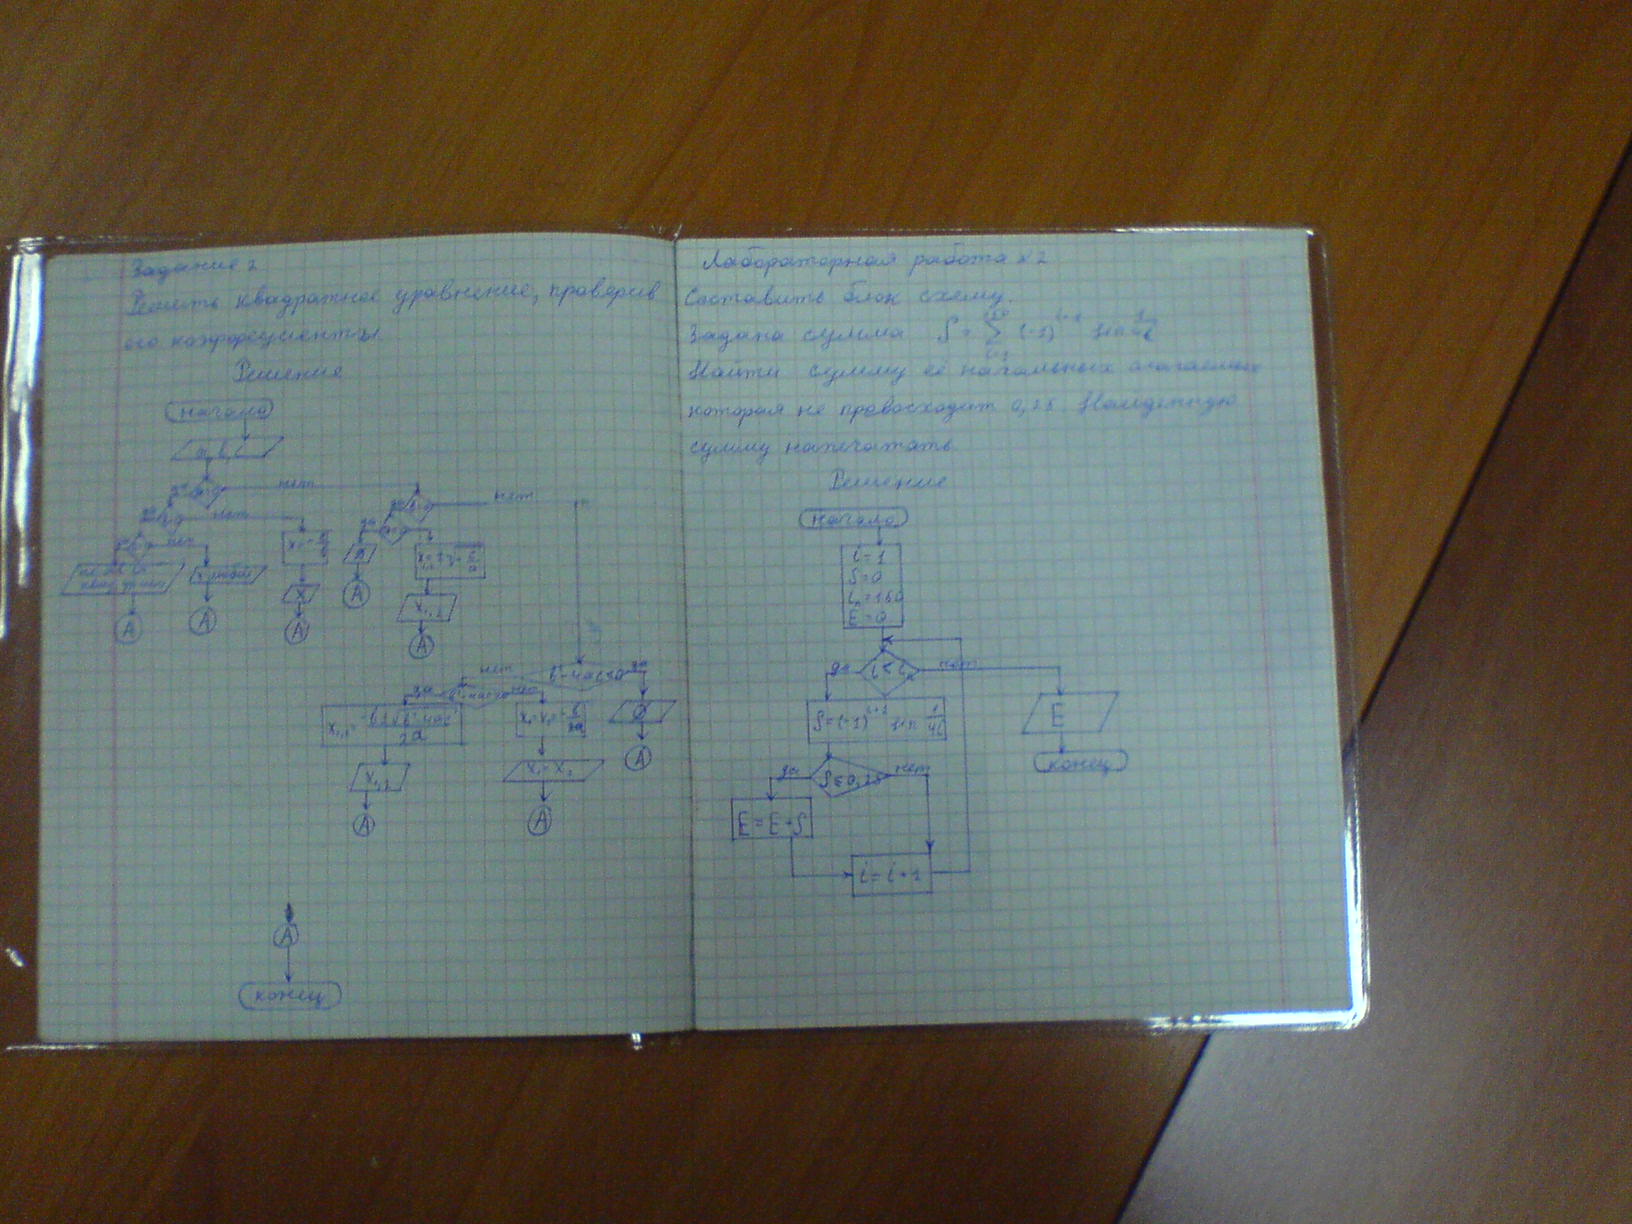 Задание 2
Решить квадратное уравнение, проверив
его коэффициенты.
Решение
начало
a, b, c
да
нет
да
нет
да
нет
да
нет
да
x любой
x
Ø
x₁,₂
A
A
A
A
A
b²-4ac<0
да
нет
да
нет
x₁,₂=(-b±√b²-4ac)/2a
x₁=x₂=-b/2a
Ø
x₁,₂
x₁=x₂
A
A
A
A
конец
Лабораторная работа №2
Составить блок схему.
Задана сумма S = Σ (-1) sin 1/4i
Найти сумму её начальных слагаемых
которая не превосходит 0,25. Найденную
сумму напечатать
Решение
начало
i=1
S=0
iₙ=160
E=0
да
i<iₙ
нет
S=(-1)^(i+1) sin 1/4i
E
конец
да
S≤0,25
нет
E=E+S
i=i+1